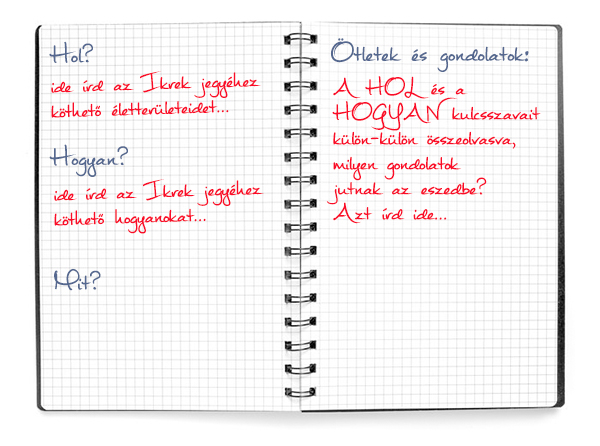 Hol?
ide írd az Ikrek jegyéhez
köthető életterületeidet...
Hogyan?
ide írd az Ikrek jegyéhez
köthető hogyanokat...
Mit?
Ötletek és gondolatok:
A HOL és a
HOGYAN kulcsszavait
külön-külön összeolvasva,
milyen gondolatok
jutnak az eszedbe?
Azt írd ide...